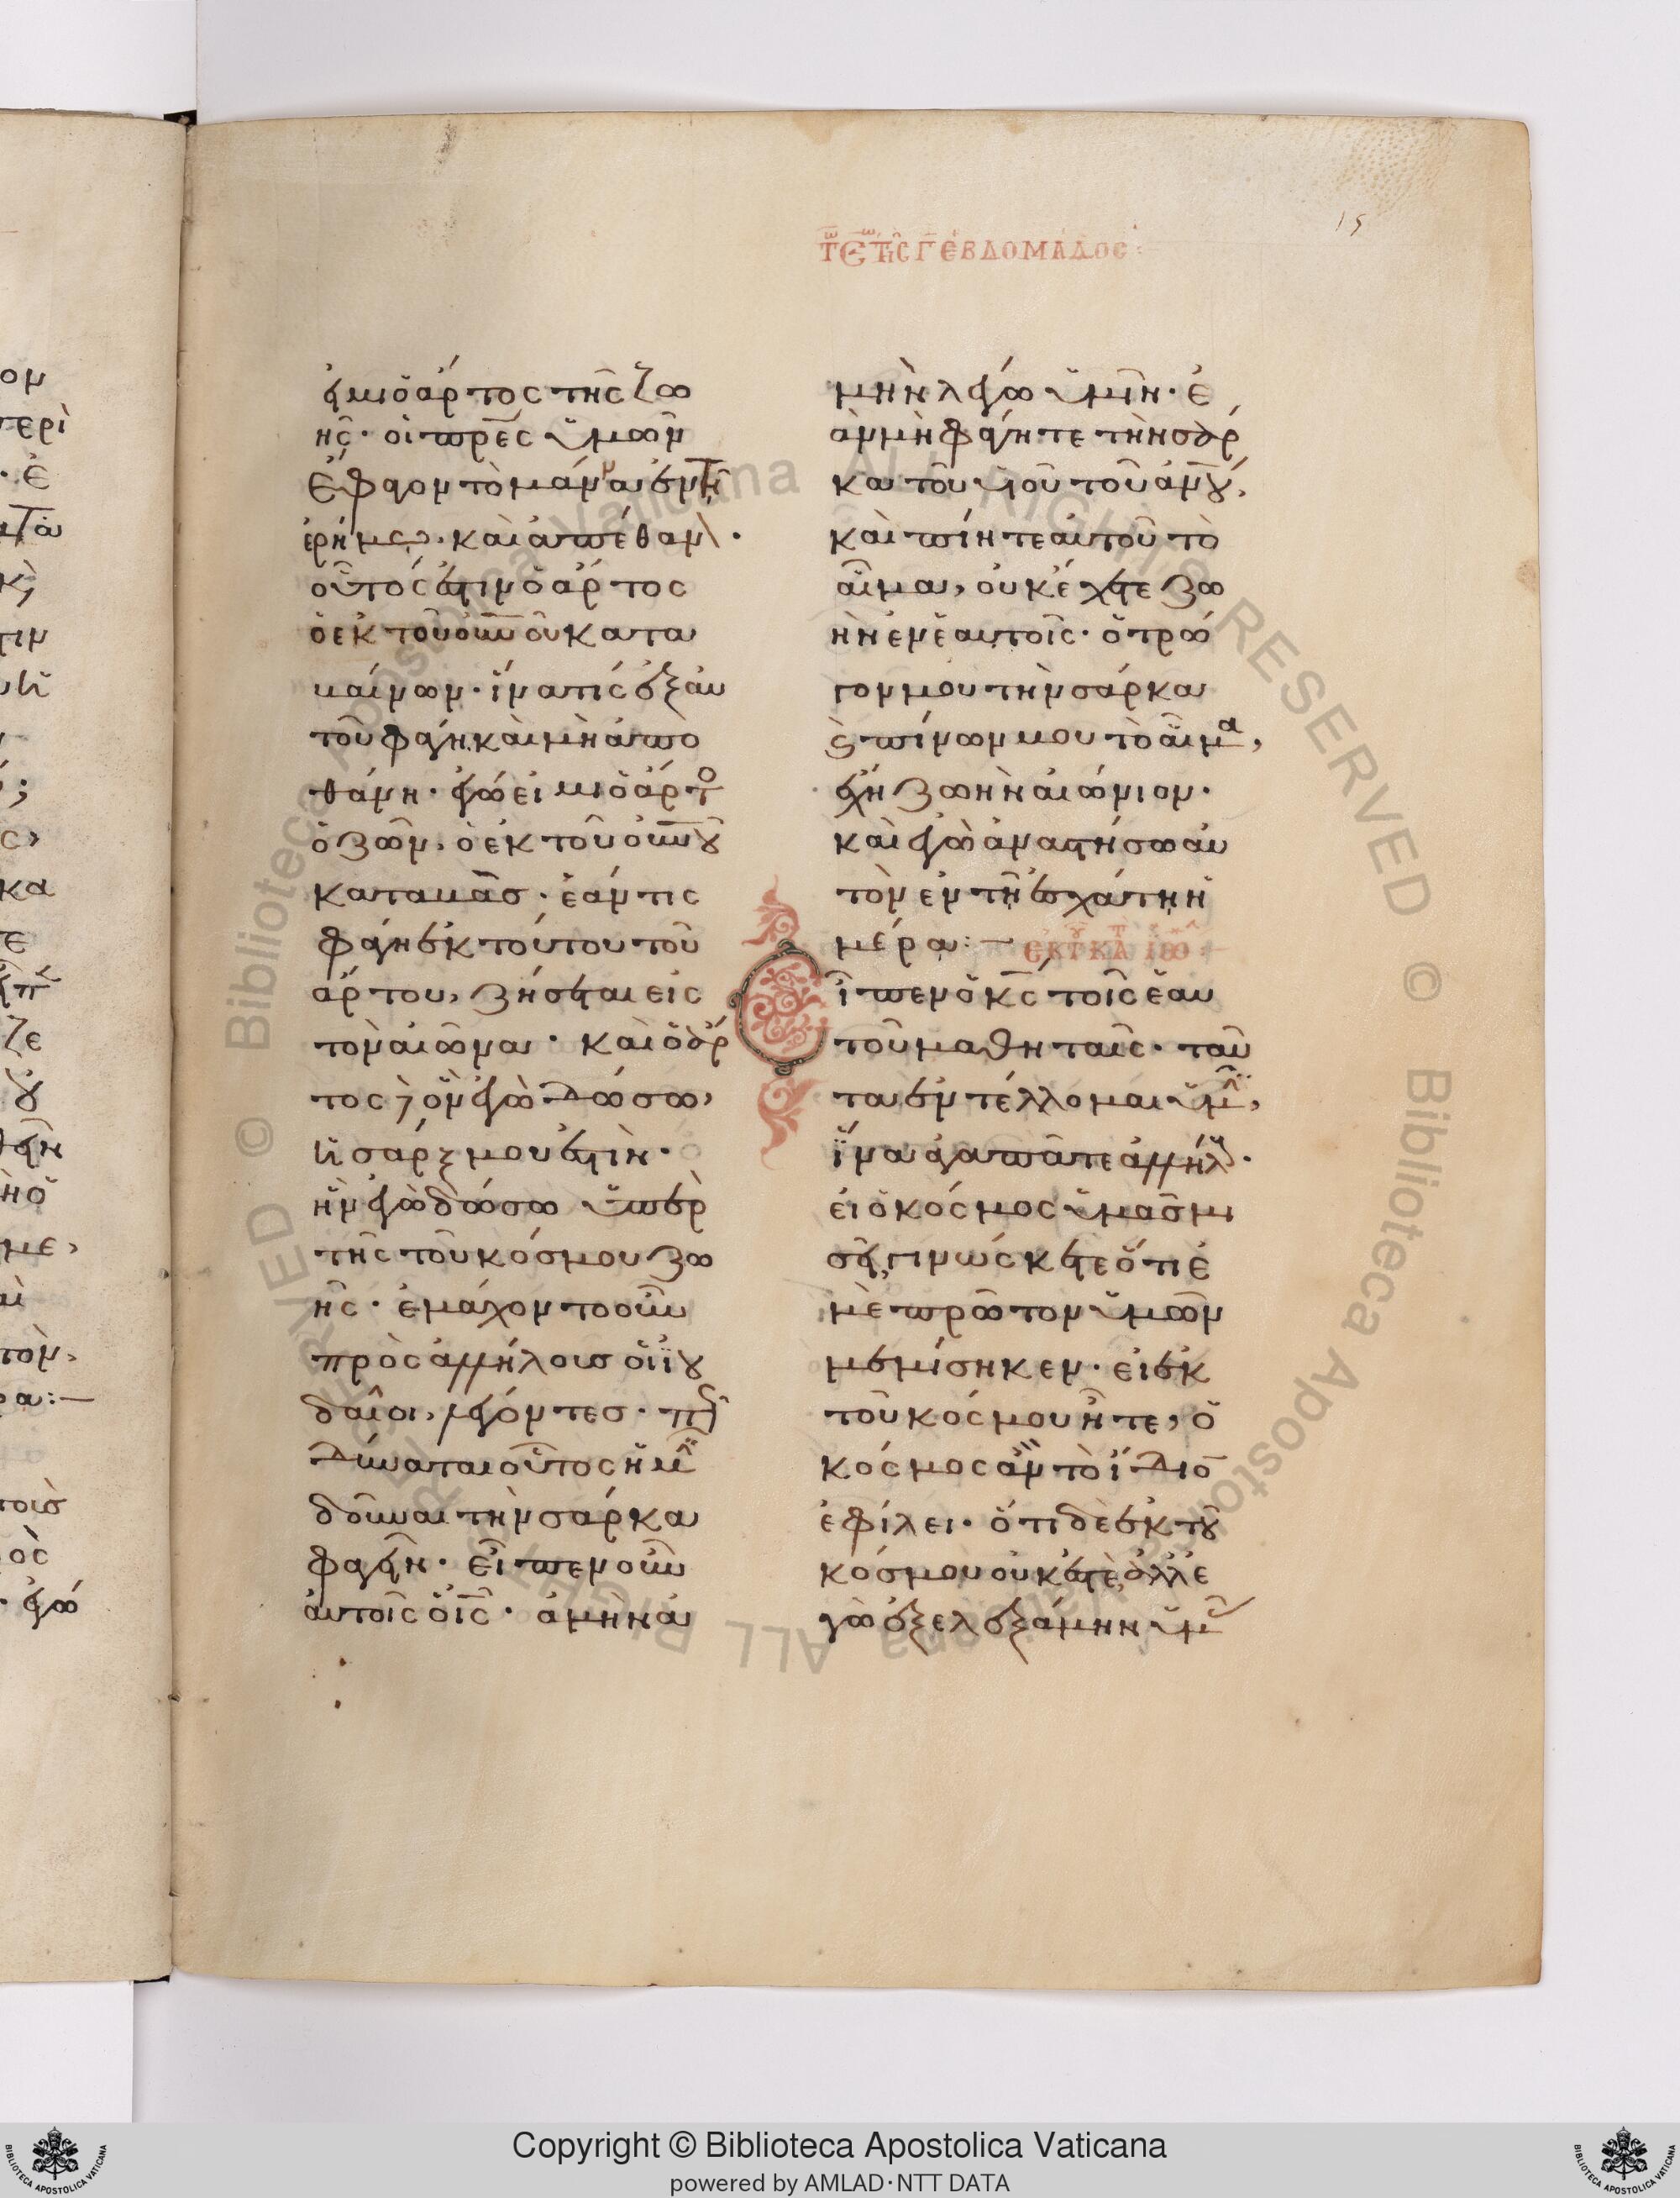 15
τω ε τησ γ εβδομαδος
εἰμι ὁ ἄρτος τῆς ζω
ῆς· οἱ πρες ὑμῶν
ἔφαγον τὸ μάννα ἐν τῆ
ἐρήμω· καὶ ἀπέθαν·
οὗτός ἐστιν ὁ ἄρτος
ὁ ἐκ τοῦ ουνου κατα
βαίνων· ἵνα τίς ἐξ αυ
τοῦ φάγη, καὶ μὴ ἀπο
θάνη· ἐγώ εἰμι ὁ ἄρτο
ὁ ζῶν, ὁ ἐκ τοῦ ουνου
καταβάσ· ἐάν τις
φάγη ἐκ τούτου τοῦ
ἄρτου, ζήσεται εἰς
τὸν αἰῶνα· καὶ ὁ ἄρ
τος δὲ ὃν ἐγὼ δώσω,
ἡ σάρξ μου ἐστὶν·
ἣν ἐγὼ δώσω ὑπὲρ
τῆς τοῦ κόσμου ζω
ῆς· ἐμάχοντο οὖν
πρὸς ἀλλήλουσ οἱ ἰου
δαῖοι, λέγοντεσ· πῶς
δύναται οὗτος ἡμῖν
δοῦναι τὴν σάρκα
φαγεῖν· εἶπεν οὖν
αὐτοῖς ὁ ις· ἀμὴν ἀ
μὴν λέγω ὑμῖν· ἐ
ὰν μὴ φάγητε τὴν σάρ
κα τοῦ υἱοῦ τοῦ ανου,
καὶ πίητε αὐτοῦ τὸ
αἷμα, οὐκ ἔχετε ζω
ὴν ἐν ἑαυτοῖς· ὁ τρώ
γον μου τὴν σάρκα
καὶ πίνων μου τὸ αἷμα,
ἔχει ζωὴν αἰώνιον·
καὶ ἐγὼ ἀναστήσω αυ
τὸν ἐν τῆ ἐσχάτη ἡ
μέρα:— εκ τοῦ κατ ιω
εἶπεν ὁ κς τοῖς ἑαυ
τοῦ μαθηταῖς· ταῦ
τα ἐντέλλομαι ὑμῖν,
ἵνα ἀγαπᾶτε ἀλλήλους·
εἰ ὁ κόσμος ὑμᾶς μι
σεῖ, γινώσκετε ὅτι ἐ
μὲ πρῶτον ὑμῶν
μεμίσηκεν· εἰ ἐκ
τοῦ κόσμου ἦτε, ὁ
κόσμος ἂν τὸ ἴδιο
ἐφίλει· ὅτι δὲ ἐκ τοῦ
κόσμου οὐκ ἐστὲ, ἀλλ' ἐ
γὼ ἐξελεξάμην ὑμᾶς